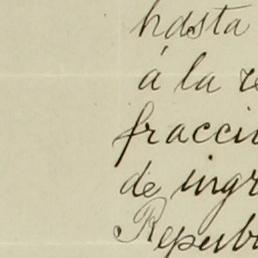 hasta
á la re
fracci
de ingr
Repub